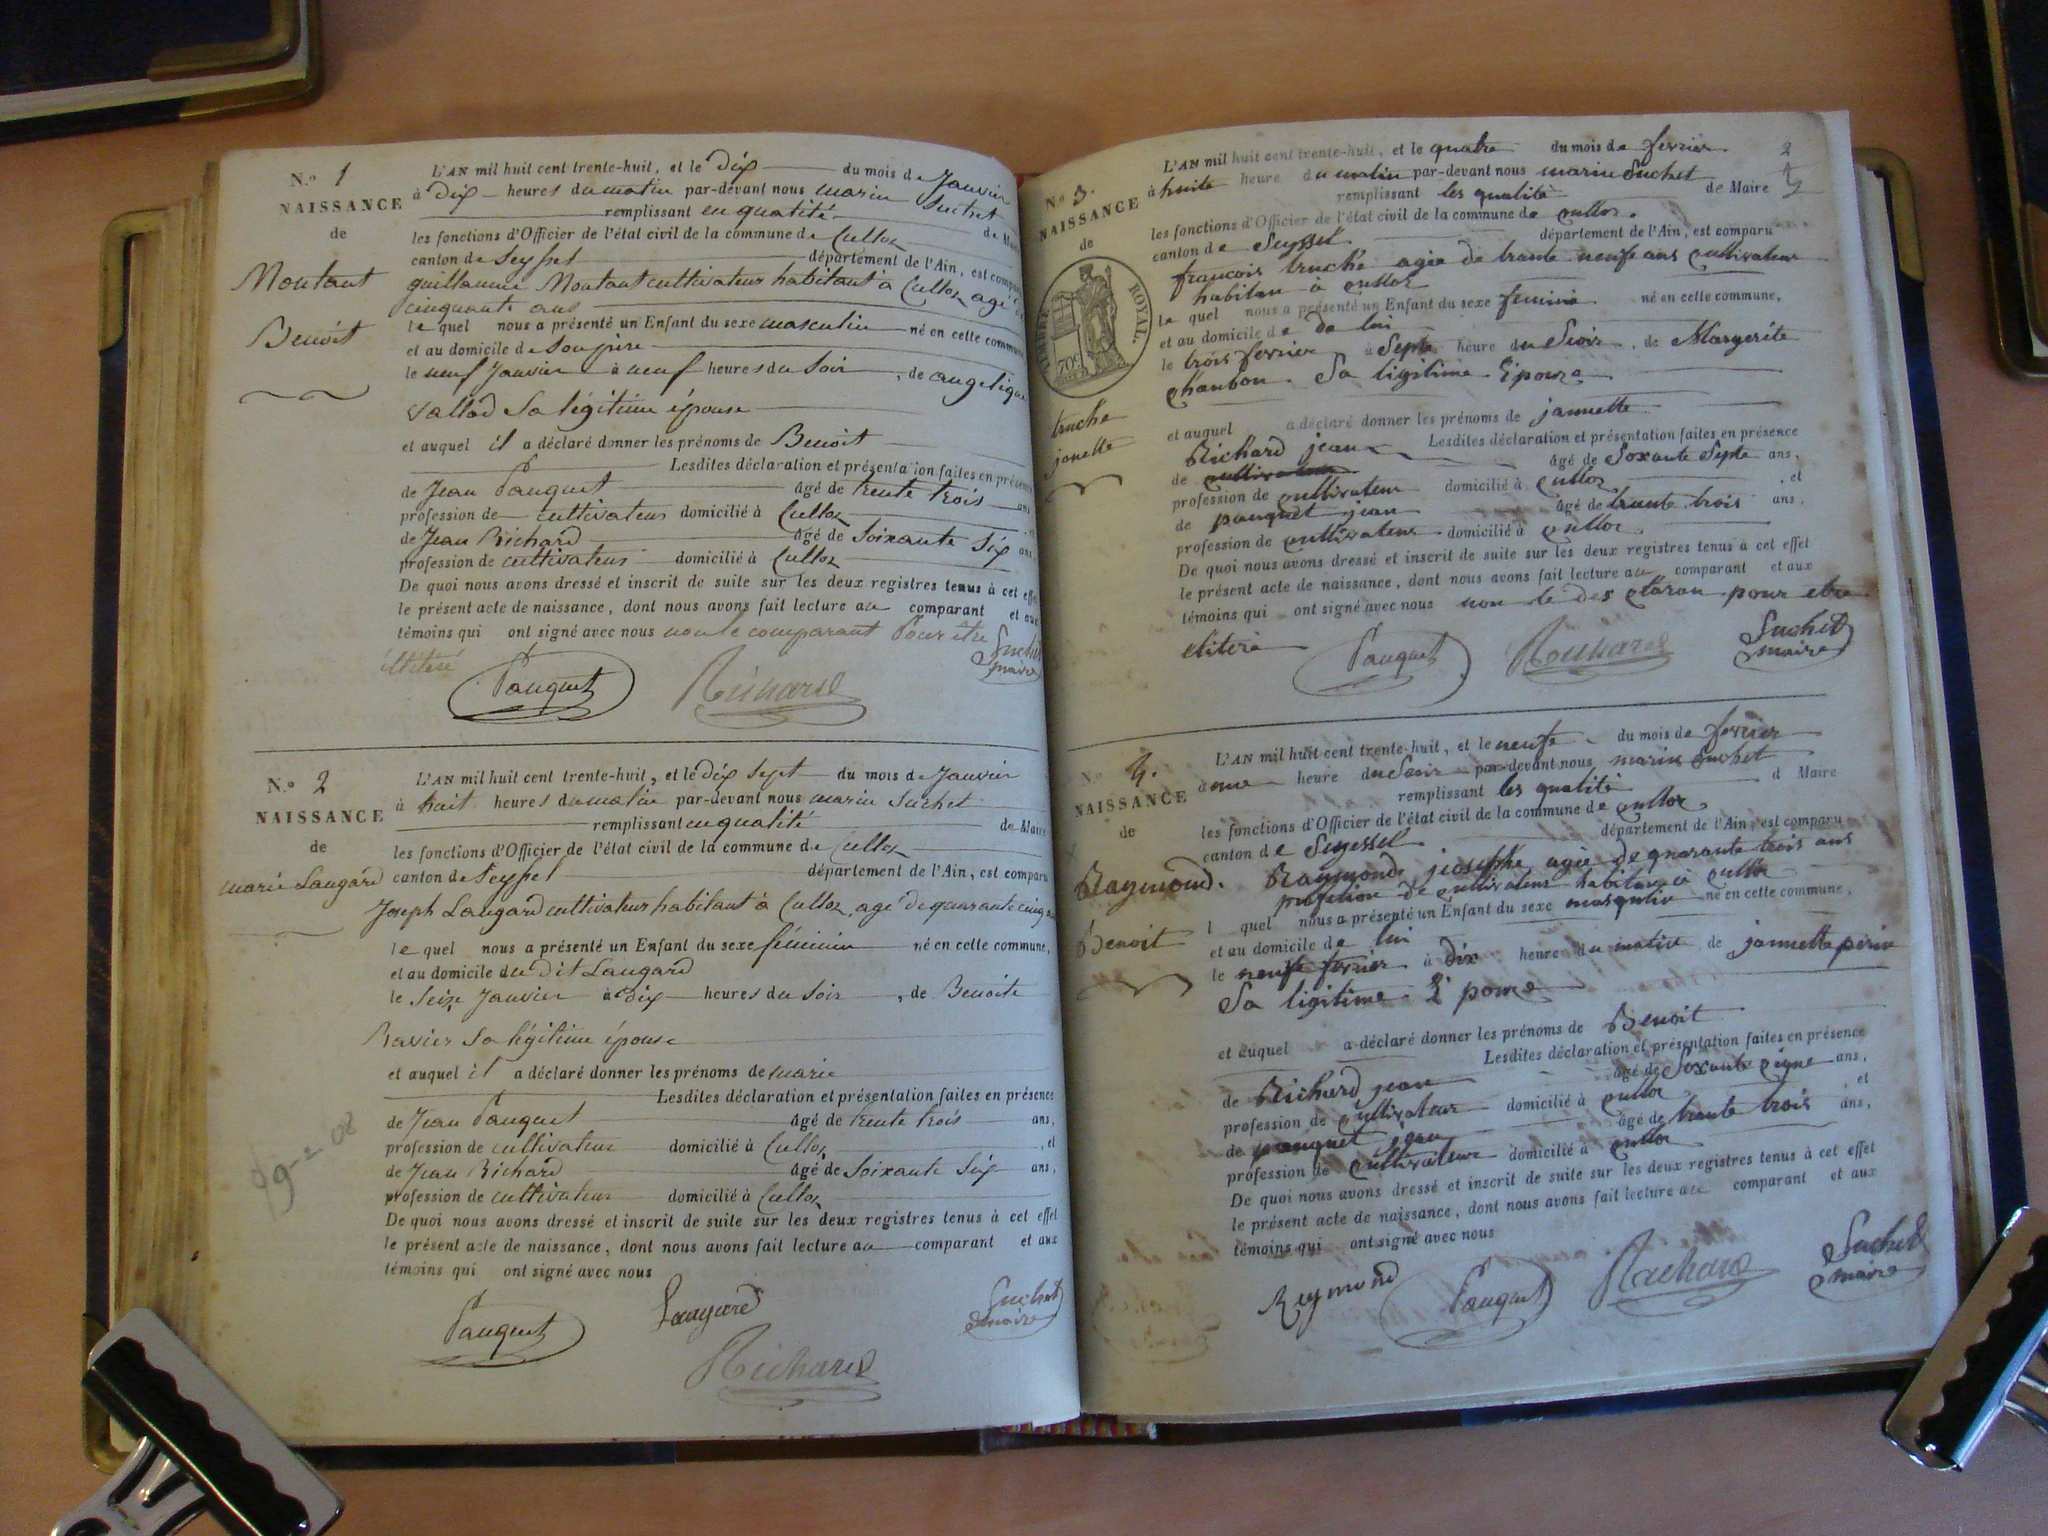 N.o 1
NAISSANCE
de
Montant
Benoit
L'AN mil huit cent trente-huit, et le dix du mois de Janvier
à dix heures du matin par-devant nous marin Suchet
remplissant en qualité de Maire
les fonctions d'Officier de l'état civil de la commune de Culloz
canton de Seyssel département de l'Ain, est comparu
guillaume Montant cultivateur habitant à Culloz agé de
cinquante ans
le quel nous a présenté un Enfant du sexe masculin né en cette commune
et au domicile de son père
le neuf Janvier à neuf heures du soir, de angelique
vallod sa légitime épouse
et auquel il a déclaré donner les prénoms de Benoit
Lesdites déclaration et présentation faites en présence
de Jean Pauquet âgé de trente trois ans
profession de cultivateur domicilié à Culloz
de Jean Richard âgé de soixante six ans
profession de cultivateur domicilié à Culloz
De quoi nous avons dressé et inscrit de suite sur les deux registres tenus à cet effet
le présent acte de naissance, dont nous avons fait lecture au comparant et aux
témoins qui ont signé avec nous non le comparant pour être
illitéré
Suchet
maire
Pauquet Richard
N.o 2
NAISSANCE
de
marie Laugard
L'AN mil huit cent trente-huit, et le dix sept du mois de Janvier
à huit heures du matin par-devant nous marin Suchet
remplissant en qualité de Maire
les fonctions d'Officier de l'état civil de la commune de Culloz
canton de Seyssel département de l'Ain, est comparu
Joseph Laugard cultivateur habitant à Culloz, agé de quarante cinq ans
le quel nous a présenté un Enfant du sexe féminin né en cette commune,
et au domicile du dit Laugard
le seize Janvier à dix heures du soir, de Benoite
Ravier sa légitime épouse
et auquel il a déclaré donner les prénoms de marie
Lesdites déclaration et présentation faites en présence
de Jean Pauquet âgé de trente trois ans,
profession de cultivateur domicilié à Culloz, et
de Jean Richard âgé de soixante six ans,
profession de cultivateur domicilié à Culloz
De quoi nous avons dressé et inscrit de suite sur les deux registres tenus à cet effet
le présent acte de naissance, dont nous avons fait lecture au comparant et aux
témoins qui ont signé avec nous
Pauquet Laugard Suchet
maire
Richard
N.o 3.
NAISSANCE
de
TIMBRE ROYAL.
70c
truche
janette
L'AN mil huit cent trente-huit, et le quatre du mois de fevrier
à huite heure du matin par-devant nous marin Suchet
remplissant les qualité de Maire
les fonctions d'Officier de l'état civil de la commune de culloz.
canton de Seyssel département de l'Ain, est comparu
francois truche agée de trante neufe ans cultivateur
habitan à culloz
le quel nous a présenté un Enfant du sexe feminin né en cette commune,
et au domicile de de lui
le trois fevrier à Septe heure du Soir, de Margerite
chanbon. Sa ligitime Epouze
et auquel a déclaré donner les prénoms de jannette
Lesdites déclaration et présentation faites en présence
Richard jean
de cultivateur âgé de Soxante Septe ans,
profession de cultivateur domicilié à culloz, et
de pauquet jean âgé de trante trois ans,
profession de cultivateur domicilié à culloz
De quoi nous avons dressé et inscrit de suite sur les deux registres tenus à cet effet
le présent acte de naissance, dont nous avons fait lecture au comparant et aux
témoins qui ont signé avec nous non le des claran pour etre
elitere
Pauquet Richard Suchet
maire
N.o 4.
NAISSANCE
de
Raymond.
Benoit
L'AN mil huit cent trente-huit, et le neufe du mois de fevrier
à onze heure du Soir par-devant nous marin Suchet
remplissant les qualité d Maire
les fonctions d'Officier de l'état civil de la commune de culloz
canton de Seyessel département de l'Ain, est comparu
Raymond josephe agée de quarante trois ans
profetion de cultivateur habitan à culloz
l quel nous a présenté un Enfant du sexe masqulin né en cette commune,
et au domicile de lui
le neufe fevrier à dix heure du matin de jannette perin
Sa ligitime Epouze
et auquel a déclaré donner les prénoms de Benoit
Lesdites déclaration et présentation faites en présence
de Richard jean âgé de Soxante ans,
profession de cultivateur domicilié à culloz et
de pauquet jean âgé de trante trois ans,
profession de cultivateur domicilié à culloz
De quoi nous avons dressé et inscrit de suite sur les deux registres tenus à cet effet
le présent acte de naissance, dont nous avons fait lecture au comparant et aux
témoins qui ont signé avec nous
Raymond Pauquet Richard Suchet
maire